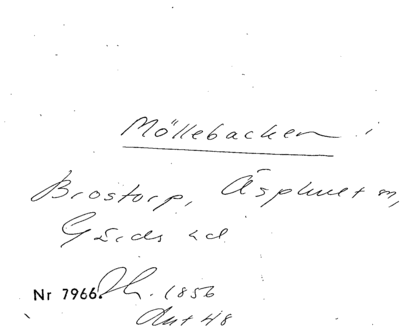 Möllebacken i
Brostorp, Äsphult sn,
Gärds hd
Nr 7966. 1856
Ant 48